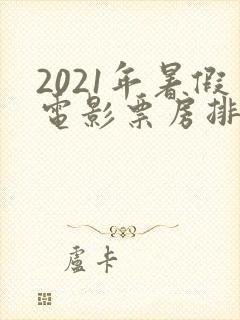 2021年暑假
電影票房排
盧卡